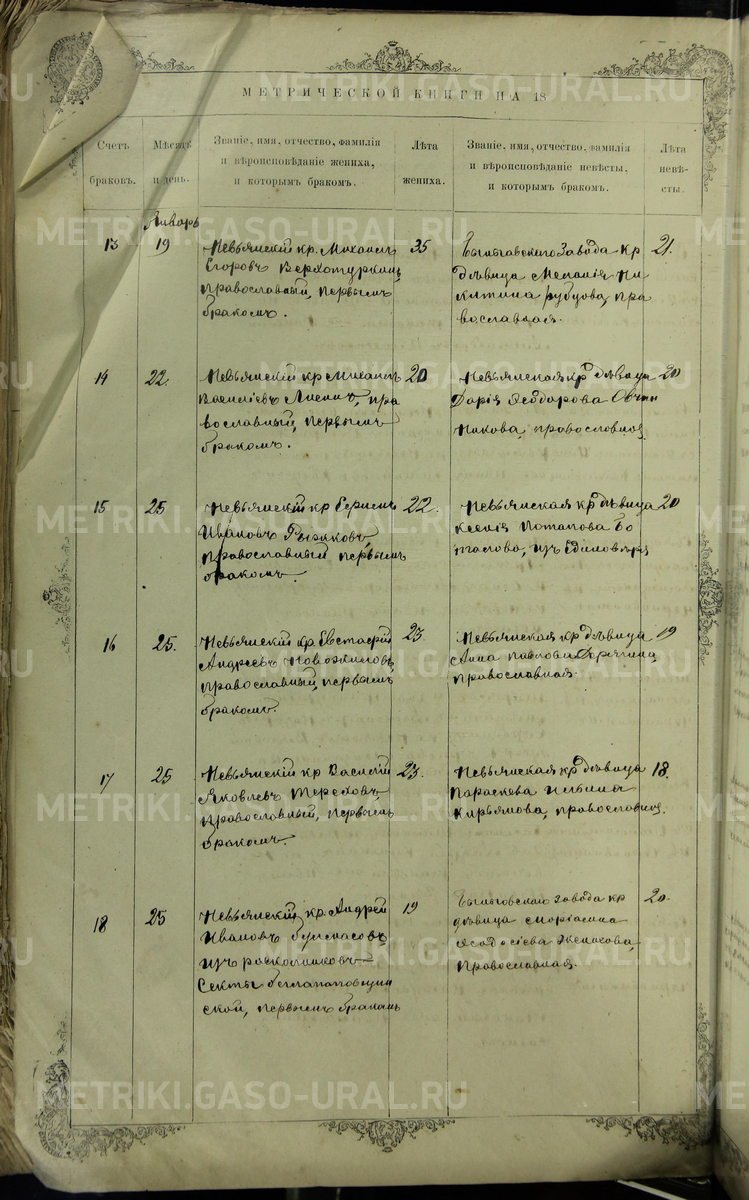 МЕТРИЧЕСКОЙ КНИГИ НА 18
Счетъ браковъ.
Мѣсяцъ и день.
Званіе, имя, отчество, фамилія
и вѣроисповѣданіе жениха,
и которымъ бракомъ.
Лѣта жениха.
Званіе, имя, отчество, фамилія
и вѣроисповѣданіе невѣсты,
и которымъ бракомъ.
Лѣта невѣ-
сты.
Январь
13
19
Невьянскій кр. Михаилъ
Егоровъ Верхотуркинъ,
православный, первымъ
бракомъ.
35
Быньговскаго Завода кр
дѣвица Меланія Ни
китина Рубцова, пра
вославная.
21.
14
22.
Невьянскій кр Михаилъ
Василіевъ пра
вославный, первымъ
бракомъ.
20
Невьянская кр дѣвица
Дарія Ѳеодорова Овчин
никова, православная
20
15
25
Невьянскій кр
Ивановъ
православный первымъ
бракомъ.
22.
Невьянская кр дѣвица
Ксенія Потапова Бо
изъ Единовѣрія
20
16
25.
Невьянскій кр. Евстафій
Андреевъ Новожиловъ,
православный, первымъ
бракомъ.
23.
Невьянская кр дѣвица
Анна Павлова
православная.
19
17
25
Невьянскій кр Василій
Яковлевъ Тереховъ,
православный, первымъ
бракомъ.
23.
Невьянская кр дѣвица
Параскева Ильина
православная.
18.
18
25
Невьянскій кр. Андрей
Ивановъ
изъ раскольниковъ
Секты беглапоповщин
ской, первымъ бракомъ
19
Быньговскаго завода кр
дѣвица
Ѳеодосіева
Православная.
20.
METRIKI.GASO-URAL.RU